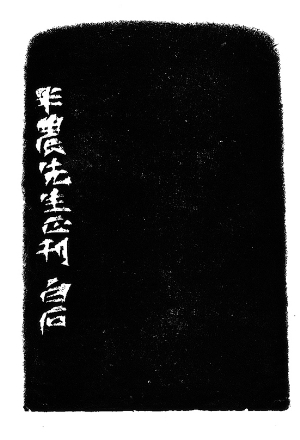 半農先生正刊 白石